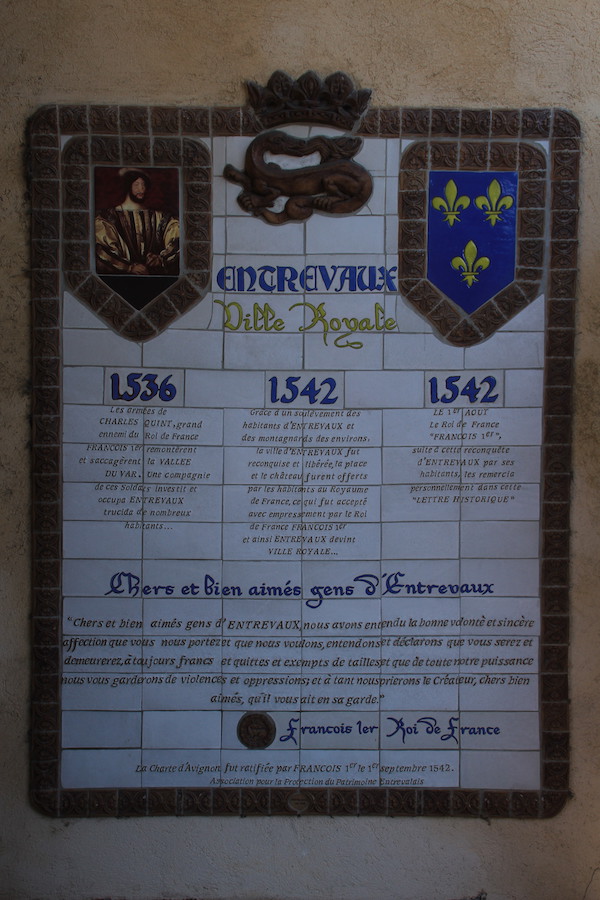 ENTREVAUX
Ville Royale
1536
Les armées de
CHARLES QUINT, grand
ennemi du Roi de France
FRANCOIS 1er remontèrent
et saccagèrent la VALLEE
DU VAR. Une compagnie
de ces Soldats investit et
occupa ENTREVAUX
trucida de nombreux
habitants...
1542
Grâce d'un soulèvement des
habitants d'ENTREVAUX et
des montagnards des environs,
la ville d'ENTREVAUX fut
reconquise et libérée, la place
et le château furent offerts
par les habitants au Royaume
de France, ce qui fut accepté
avec empressement par le Roi
de France FRANCOIS 1er
et ainsi ENTREVAUX devint
VILLE ROYALE...
1542
LE 1er AOUT
Le Roi de France
"FRANÇOIS 1er",
suite à cette reconquête
d'ENTREVAUX par ses
habitants, les remercia
personnellement dans cette
"LETTRE HISTORIQUE"
Chers et bien aimés gens d'Entrevaux
"Chers et bien aimés gens d'ENTREVAUX, nous avons entendu la bonne volonté et sincère
affection que vous nous portez et que nous voulons, entendons et déclarons que vous serez et
demeurerez, à toujours francs et quittes et exempts de tailles et que de toute notre puissance
nous vous garderons de violences et oppressions; et à tant nous prierons le Créateur, chers bien
aimés, qu'il vous ait en sa garde."
Francois 1er Roi de France
La Charte d'Avignon fut ratifiée par FRANCOIS 1er le 1er septembre 1542.
Association pour la Protection du Patrimoine Entrevalais